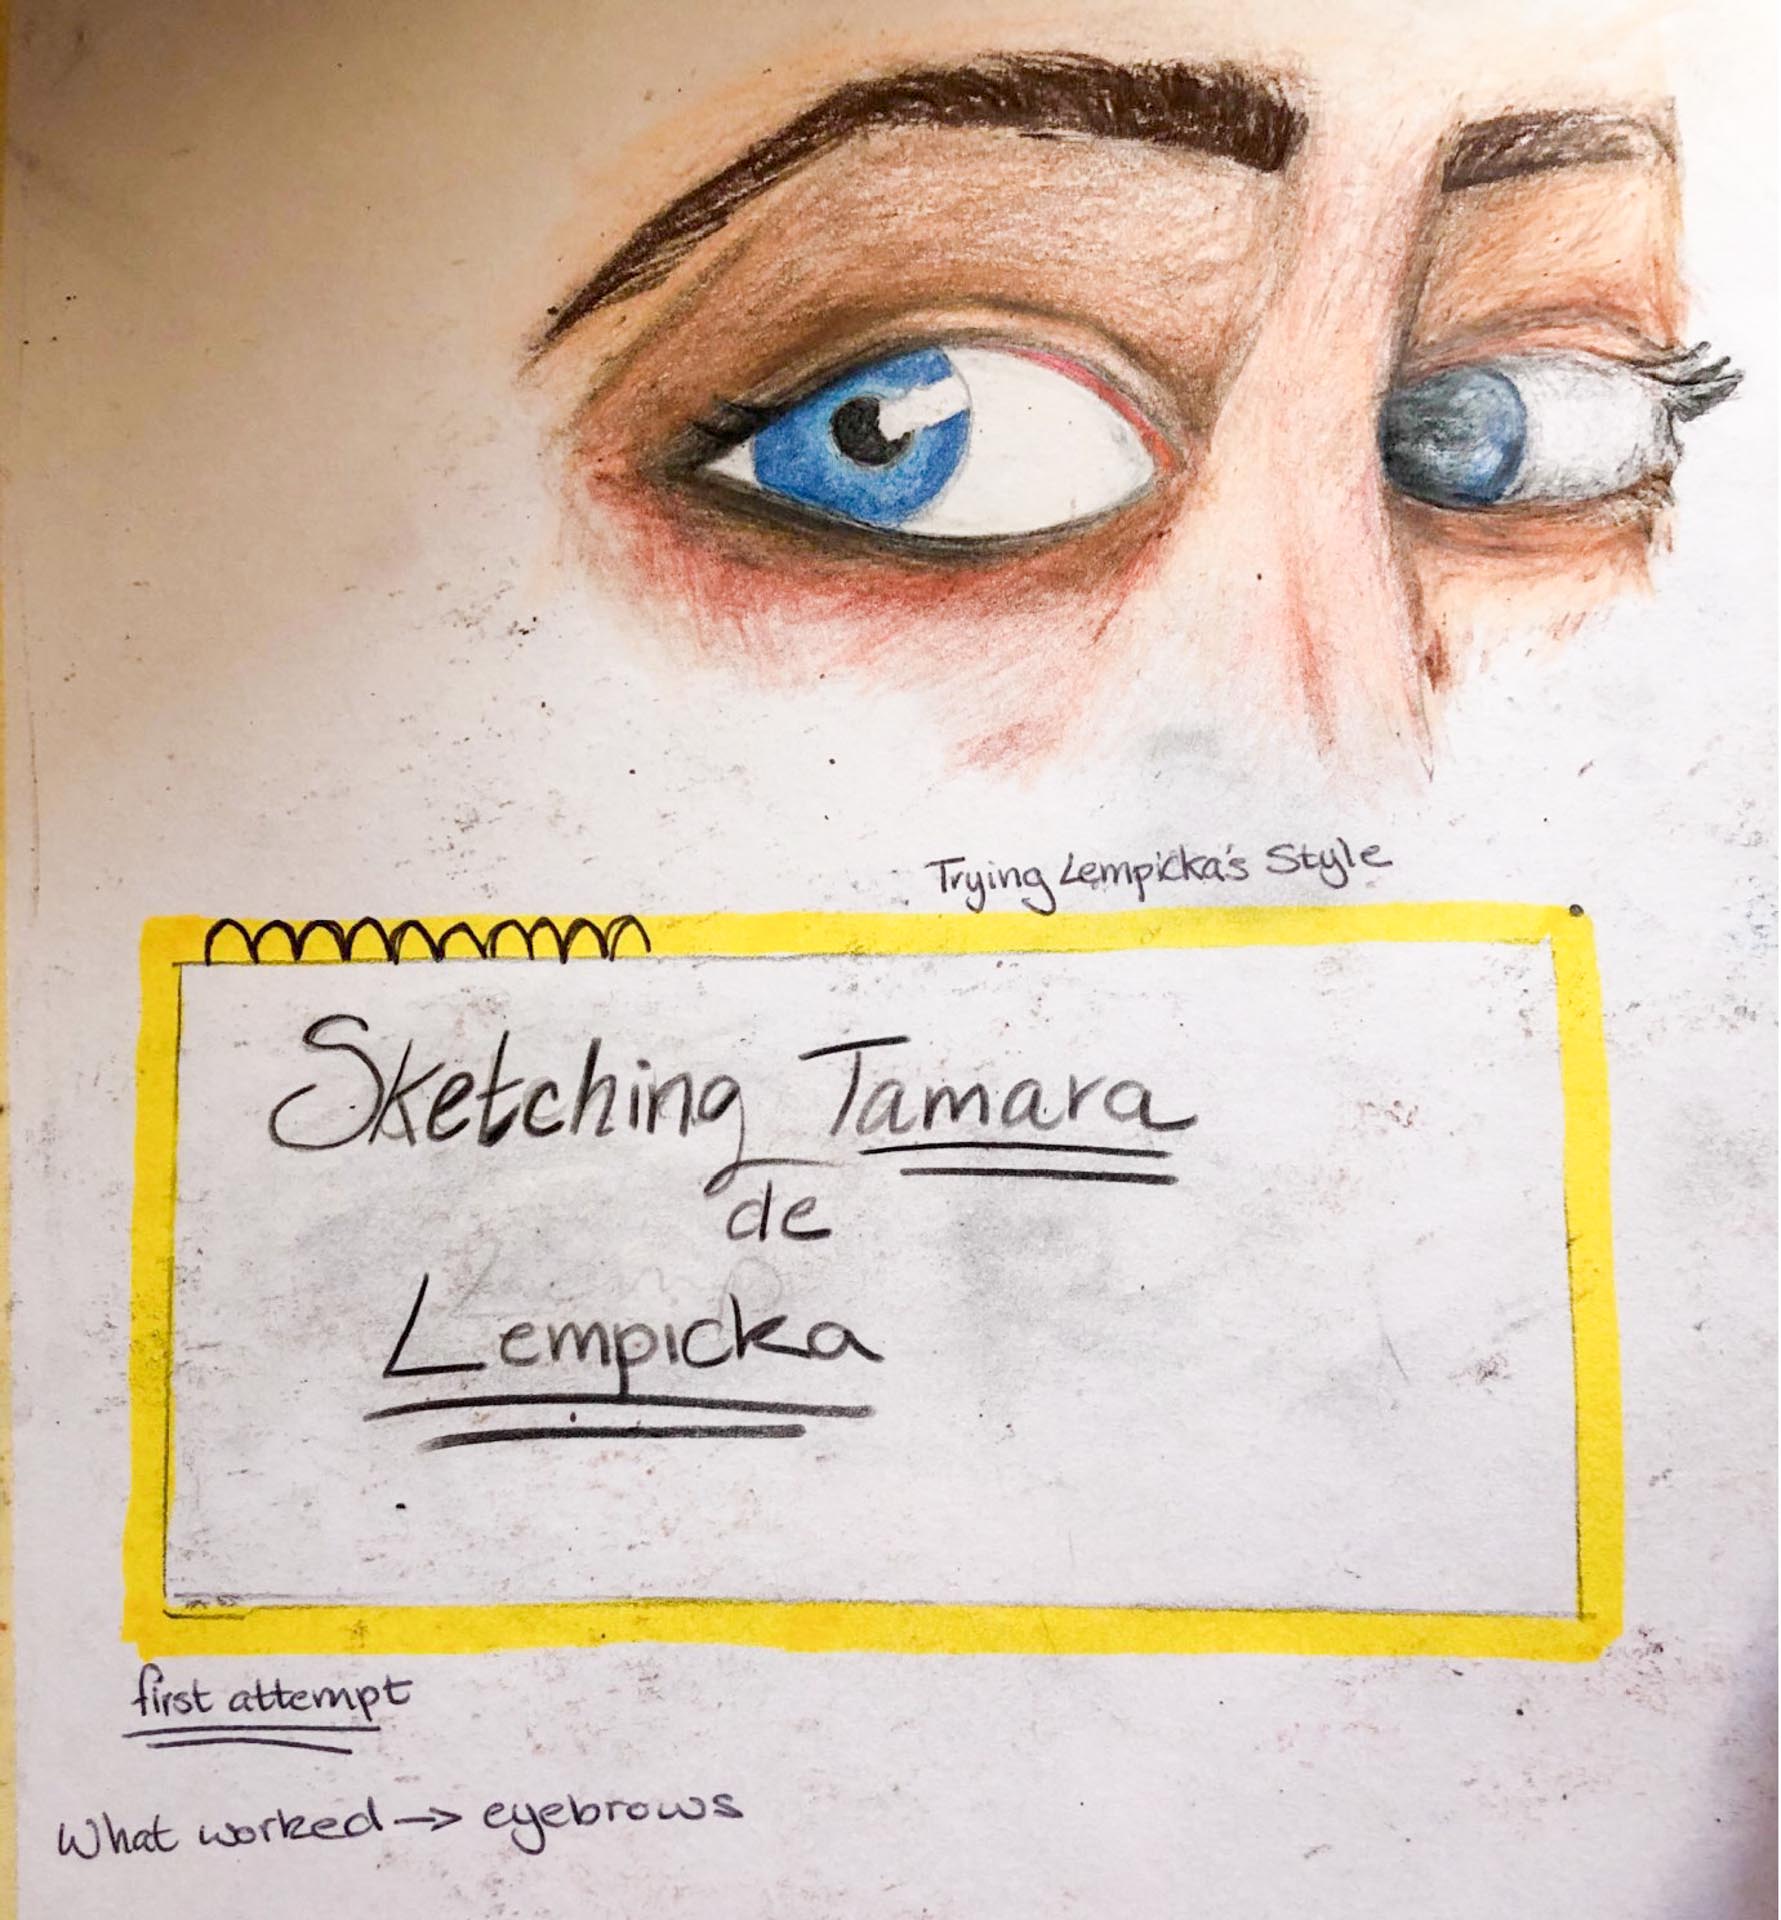 Trying Lempicka's Style
Sketching Tamara
de
Lempicka
first attempt
What worked → eyebrows